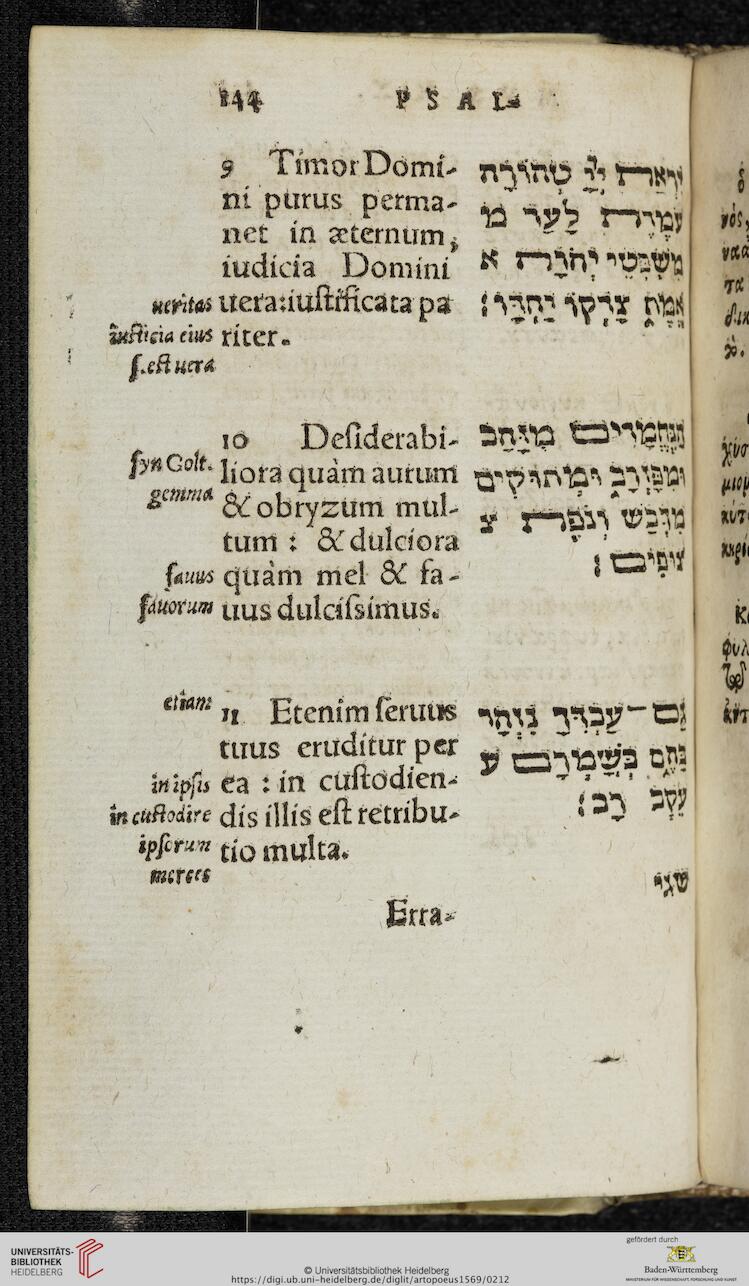 144 PSAL-
9 Timor Domi-
ni purus perma-
net in æternum,
iudicia Domini
uera: iustificata pa
riter.
ueritas
iusticia eius
s. est uera
יִרְאַת יְיָ טְהוֹרָה
עֹמֶדֶת לָעַד מ
מִשְׁפְּטֵי יְהֹוָה א
אֱמֶת צָדְקוּ יַחְדָּו׃
10 Desiderabi-
liora quàm aurum
& obryzum mul-
tum : & dulciora
quàm mel & fa-
uus dulcissimus.
syn Golt.
gemma
fauus
fauorum
הַנֶּחֱמָדִים מִזָּהָב
וּמִפָּז רָב וּמְתוּקִים
מִדְּבַשׁ וְנֹפֶת צ
צוּפִים׃
11 Etenim seruus
tuus eruditur per
ea : in custodien-
dis illis est retribu-
tio multa.
etiam
in ipsis
in custodire
ipsorum
merces
גַּם־עַבְדְּךָ נִזְהָר
בָּהֶם בְּשָׁמְרָם ע
עֵקֶב רָב׃
שגי
Erra-
UNIVERSITÄTS-
BIBLIOTHEK
HEIDELBERG
© Universitätsbibliothek Heidelberg
https://digi.ub.uni-heidelberg.de/diglit/artopoeus1569/0212
gefördert durch
Baden-Württemberg
MINISTERIUM FÜR WISSENSCHAFT, FORSCHUNG UND KUNST